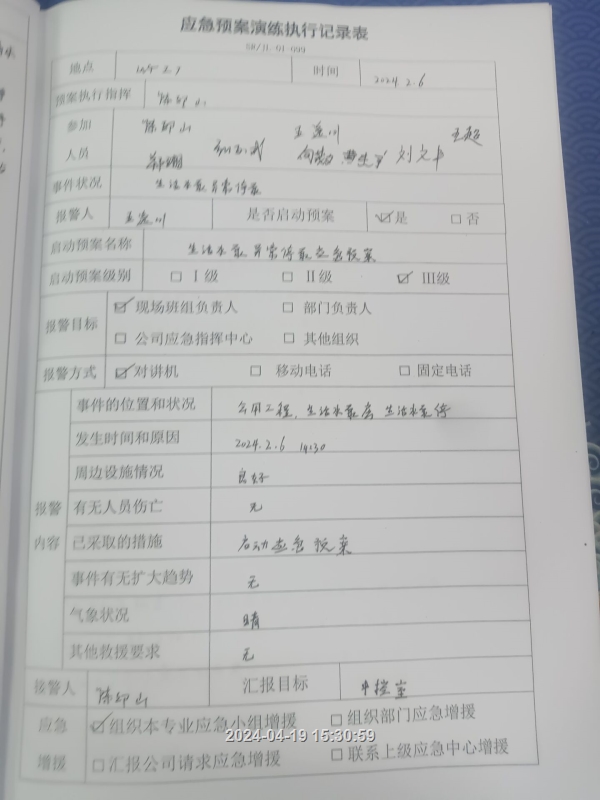 应急预案演练执行记录表
SR/JL-01-099
地点 时间 2024.2.6
预案执行指挥 陈印山
参加 陈印山 王莲川 王超
人员 刘文丰
事件状况 生活水泵异常停泵
报警人 王莲川 是否启动预案 ☑是 □否
启动预案名称 生活水泵异常停泵应急预案
启动预案级别 □ I级 □ II级 ☑ III级
报警目标 ☑ 现场班组负责人 □ 部门负责人
□ 公司应急指挥中心 □ 其他组织
报警方式 ☑ 对讲机 □ 移动电话 □ 固定电话
事件的位置和状况 公用工程、生活水泵房 生活水泵停
发生时间和原因 2024.2.6 14:30
周边设施情况 良好
报警 有无人员伤亡 无
内容 已采取的措施 启动应急预案
事件有无扩大趋势 无
气象状况 晴
其他救援要求 无
接警人 陈印山 汇报目标 中控室
应急 ☑组织本专业应急小组增援 □组织部门应急增援
2024-04-19 15:30:59
增援 □汇报公司请求应急增援 □联系上级应急中心增援